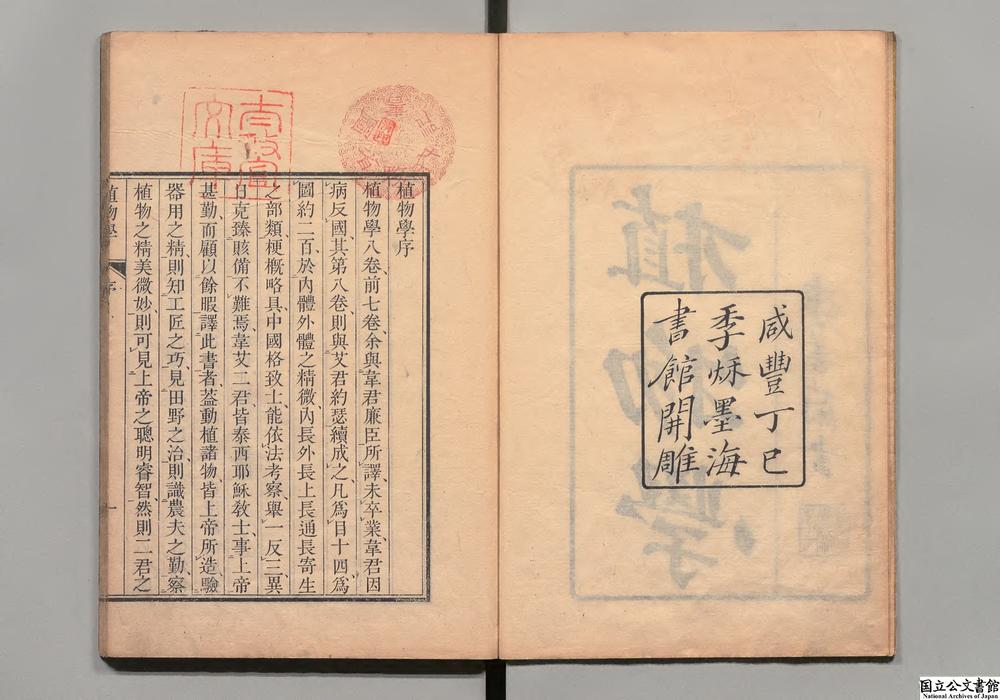 咸豐丁巳
季秌墨海
書館開雕
植物學序
植物學八卷、前七卷、余與韋君廉臣所譯、未卒業、韋君因
病反國、其第八卷、則與艾君約瑟續成之、凡爲目十四、爲
圖約二百、於內體外體之精微、內長外長上長通長寄生
之部類、梗概略具、中國格致士、能依法考察、舉一反三、異
日克臻賅備不難焉、韋艾二君、皆泰西耶穌教士、事上帝
甚勤、而顧以餘暇譯此書者、葢動植諸物、皆上帝所造、驗
器用之精、則知工匠之巧、見田野之治、則識農夫之勤、察
植物之精美微妙、則可見上帝之聰明睿智、然則二君之
植物學
序
一
植物學
国立公文書館
National Archives of Japan